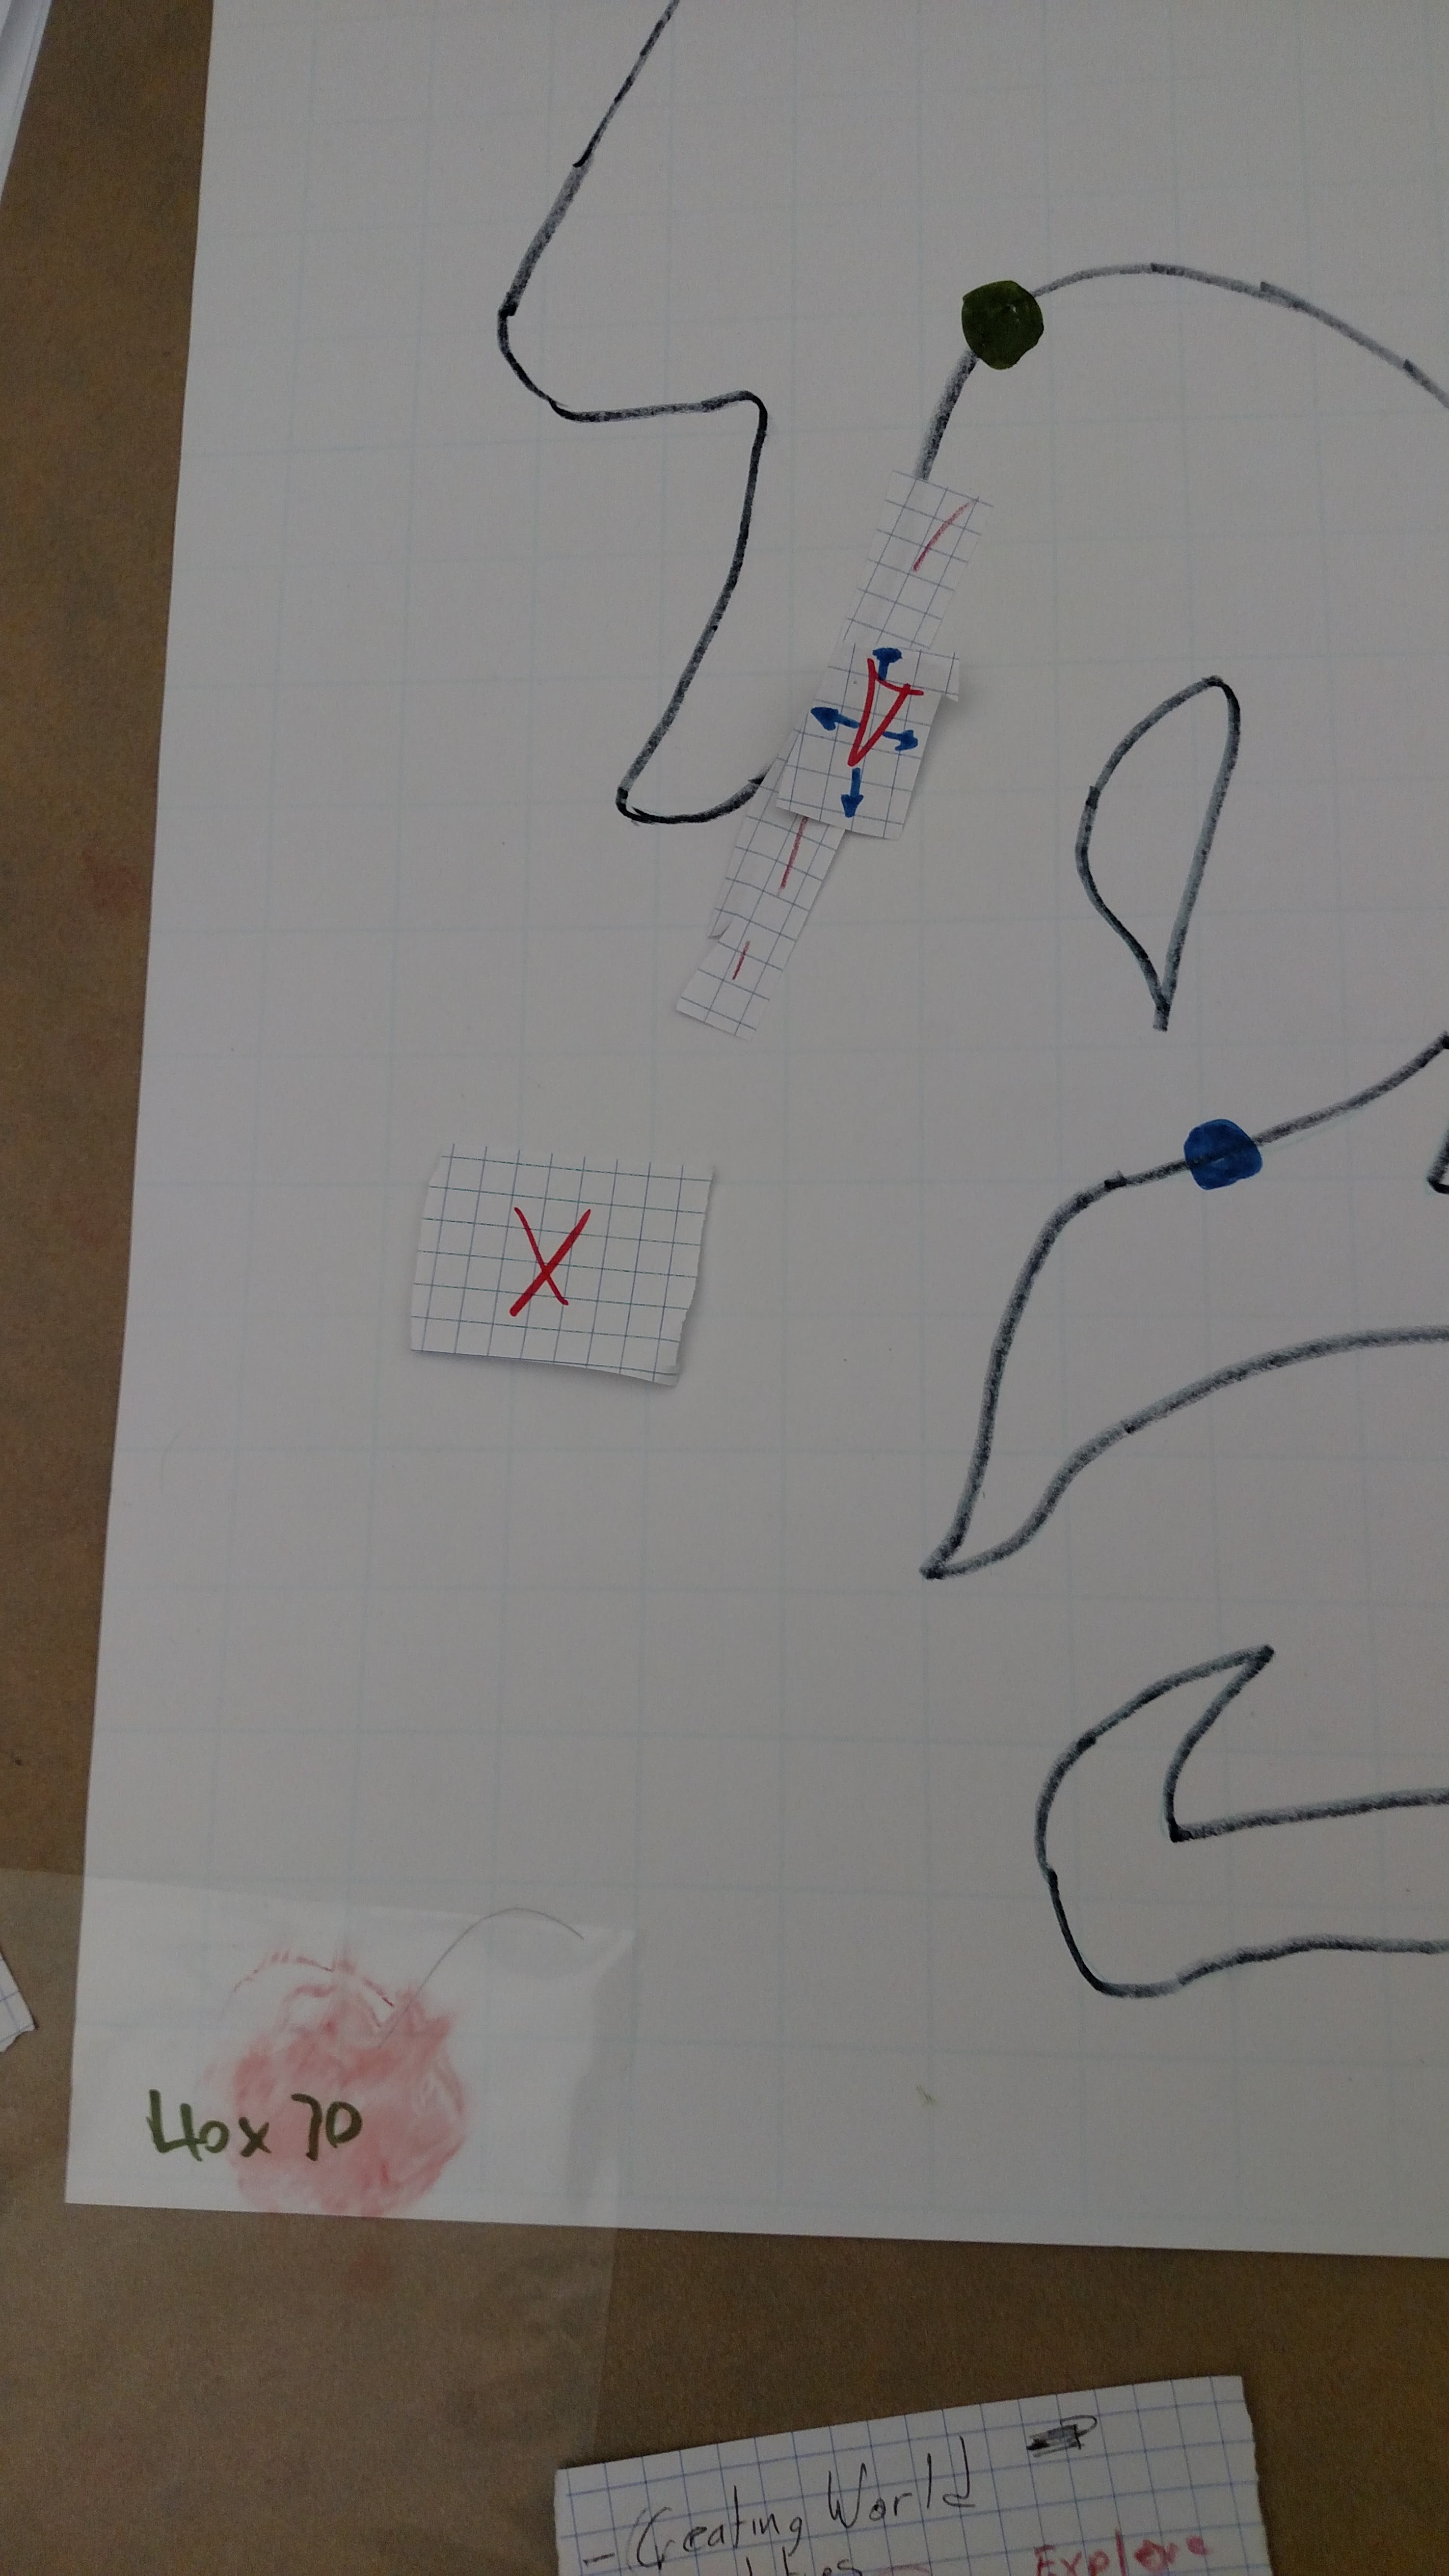 X
40x70
- Creating World
Explore